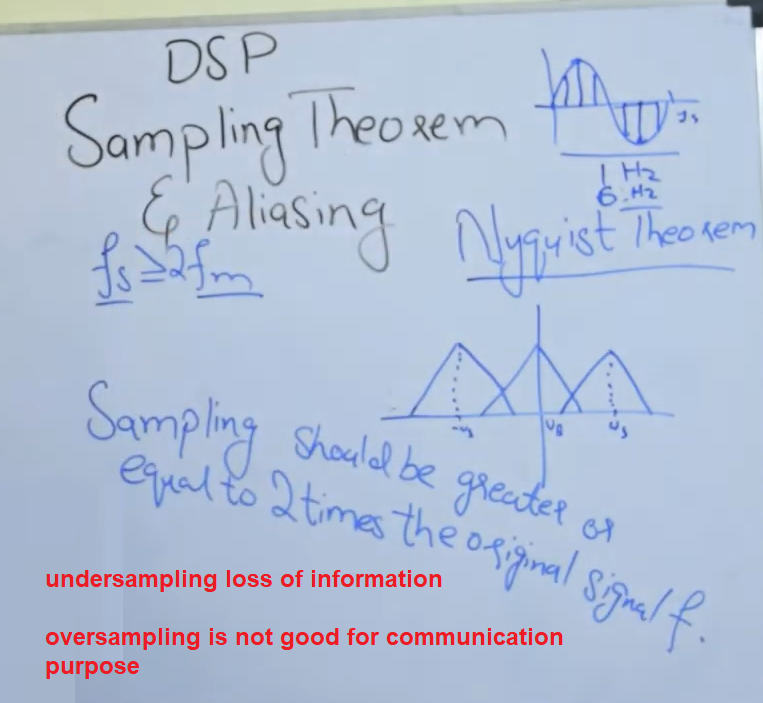 DSP
Sampling Theorem
& Aliasing
fs
1 Hz
6 Hz
Nyquist Theorem
fs ≥ 2fm
-ωs
ωs
Sampling should be greater or
equal to 2 times the original signal f.
undersampling loss of information
oversampling is not good for communication
purpose